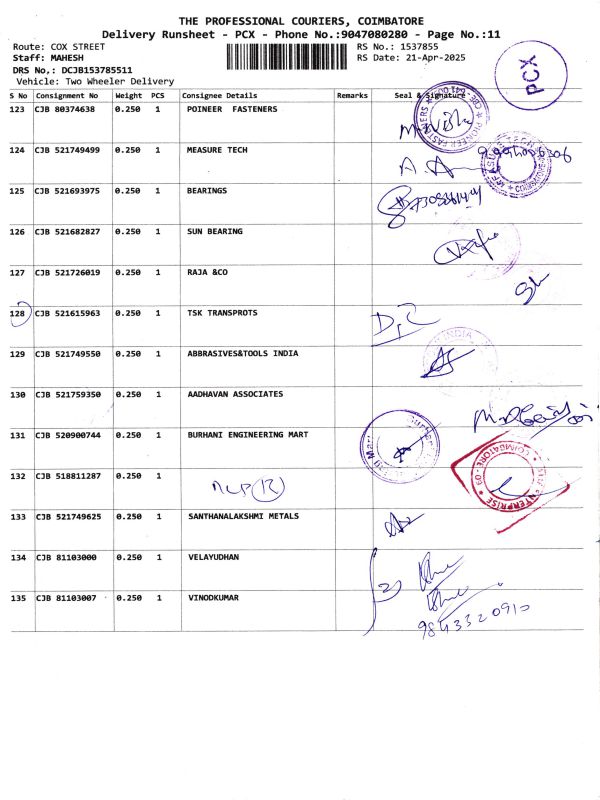 THE PROFESSIONAL COURIERS, COIMBATORE
Delivery Runsheet - PCX - Phone No.:9047080280 - Page No.:11
Route: COX STREET
RS No.: 1537855
Staff: MAHESH
RS Date: 21-Apr-2025
DRS No.: DCJB153785511
Vehicle: Two Wheeler Delivery
PCX
S No Consignment No Weight PCS Consignee Details Remarks Seal & Signature
123 CJB 80374638 0.250 1 POINEER FASTENERS
124 CJB 521749499 0.250 1 MEASURE TECH
125 CJB 521693975 0.250 1 BEARINGS
126 CJB 521682827 0.250 1 SUN BEARING
127 CJB 521726019 0.250 1 RAJA &CO
128 CJB 521615963 0.250 1 TSK TRANSPROTS
129 CJB 521749550 0.250 1 ABBRASIVES&TOOLS INDIA
130 CJB 521759350 0.250 1 AADHAVAN ASSOCIATES
131 CJB 520900744 0.250 1 BURHANI ENGINEERING MART
132 CJB 518811287 0.250 1
133 CJB 521749625 0.250 1 SANTHANALAKSHMI METALS
134 CJB 81103000 0.250 1 VELAYUDHAN
135 CJB 81103007 0.250 1 VINODKUMAR
9843320910